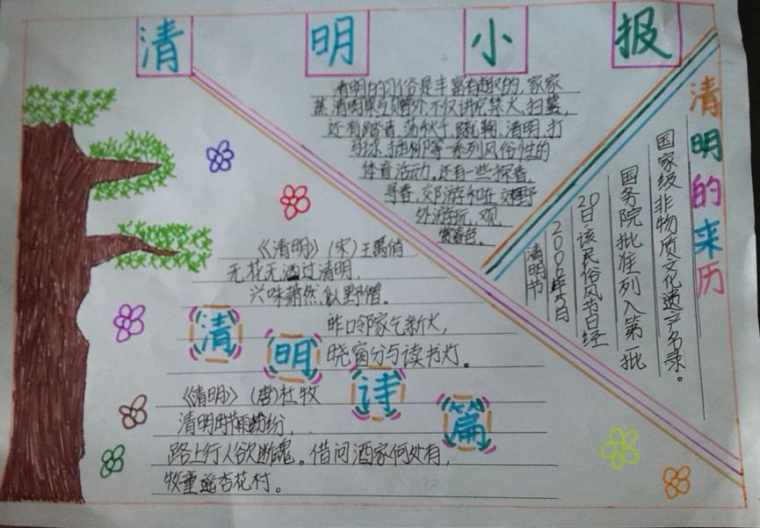 清明小报
清明的习俗是丰富有趣的,家家
不仅讲究禁火、扫墓,
还有踏青、荡秋千、蹴鞠、清明、打
马球、插柳等一系列风俗性的
体育活动,还有一些探春、
寻春、郊游和在郊野
外游玩、观
赏春色。
清明的来历
清明节
2006年5月
20日该民俗风节日经
国务院批准列入第一批
国家级非物质文化遗产名录。
清明诗篇
《清明》(宋)王禹偁
无花无酒过清明,
兴味萧然似野僧。
昨日邻家乞新火,
晓窗分与读书灯。
《清明》(唐)杜牧
清明时雨纷纷,
路上行人欲断魂。借问酒家何处有,
牧童遥杏花村。